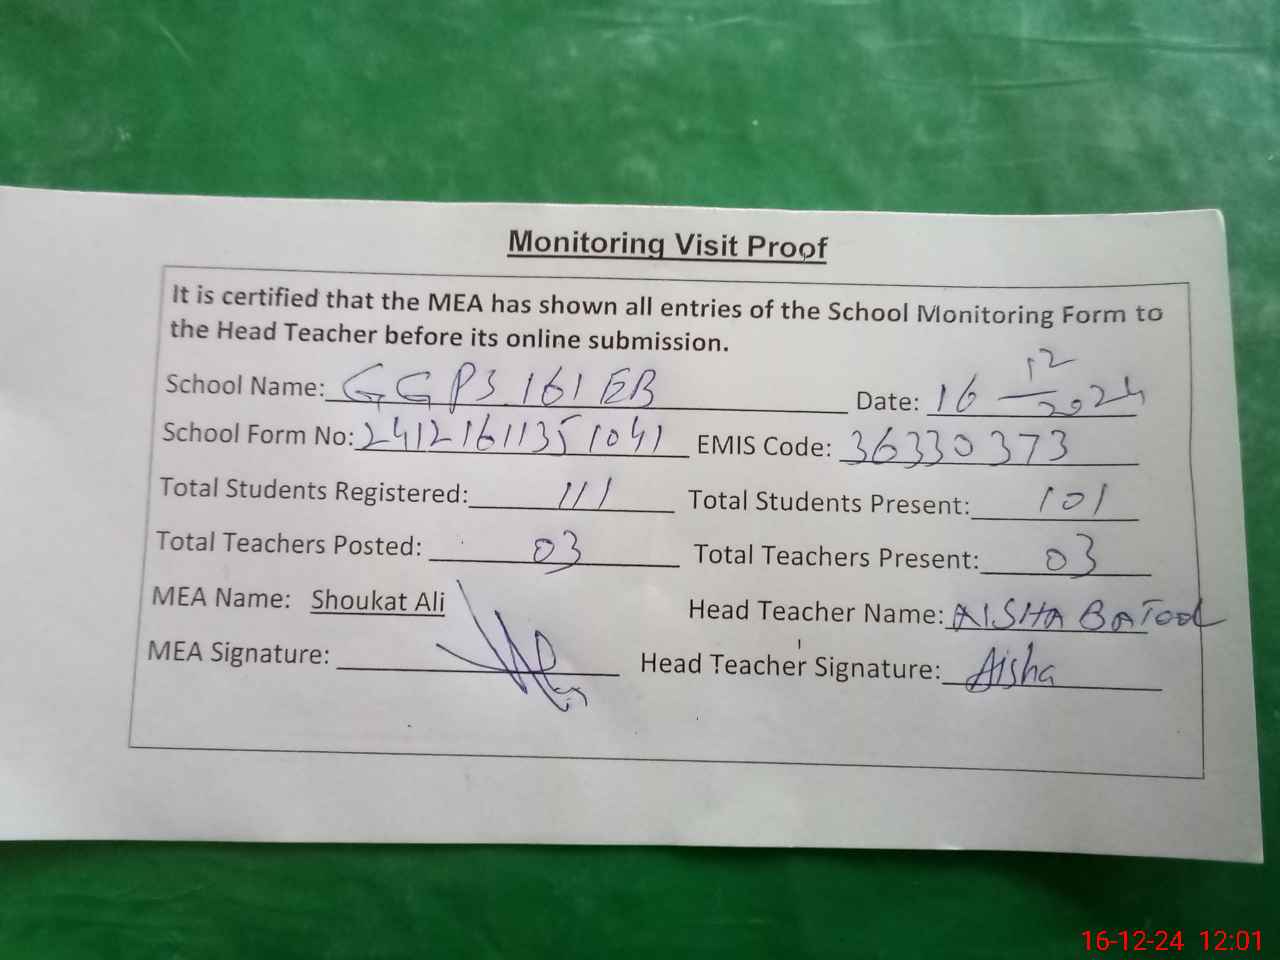 Monitoring Visit Proof
It is certified that the MEA has shown all entries of the School Monitoring Form to
the Head Teacher before its online submission.
School Name: GGPS 161 EB Date: 16 12 2024
School Form No: 2412161135 1041 EMIS Code: 36330373
Total Students Registered: 111 Total Students Present: 101
Total Teachers Posted: 03 Total Teachers Present: 03
MEA Name: Shoukat Ali Head Teacher Name: AISHA BATOOL
MEA Signature: Head Teacher Signature: Aisha
16-12-24 12:01